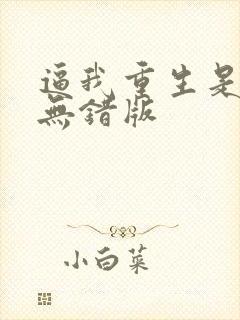 逼我重生是
無錯版
小白菜